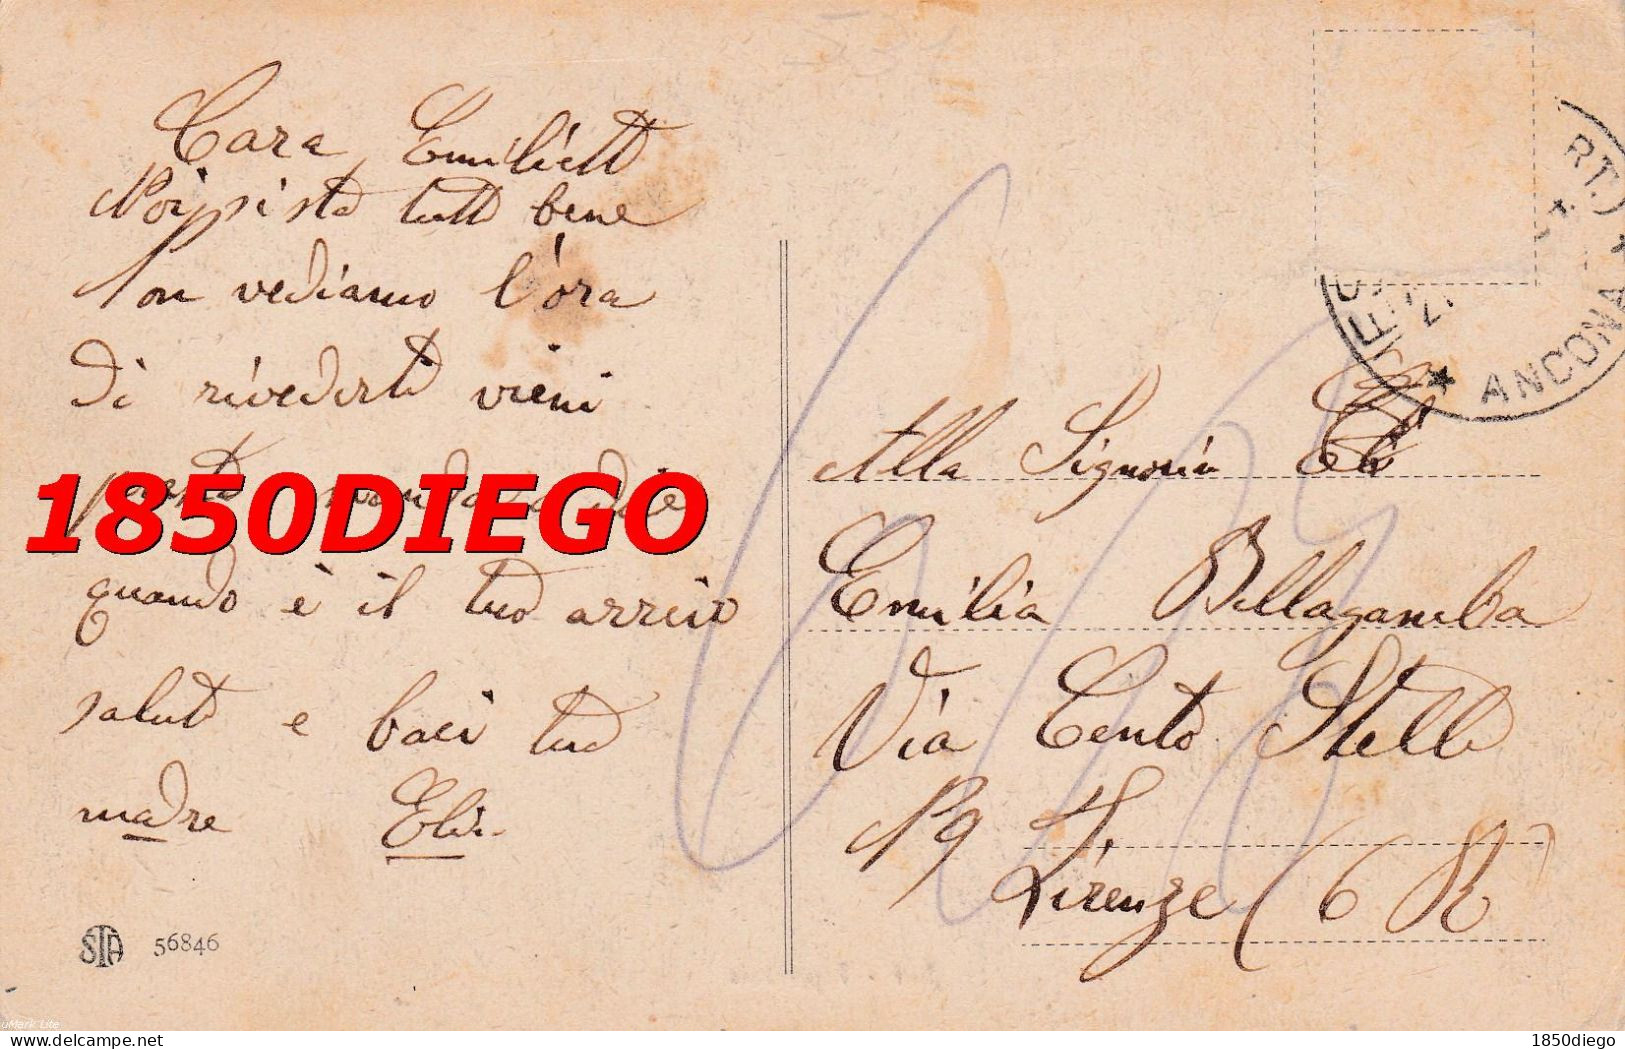 Cara Emiliett
Noi si sta tutt bene
Non vediamo l'ora
di rivederti vieni
1850DIEGO
quando è il tuo arrivo
saluti e baci tua
madre
STA 56846
RT.)
ANCONA
Alla Signoria
Emilia Bellagamba
Via Cento Stelle
N 9
Firenze (6 R)
uMark Lite
delcampe.net
1850diego